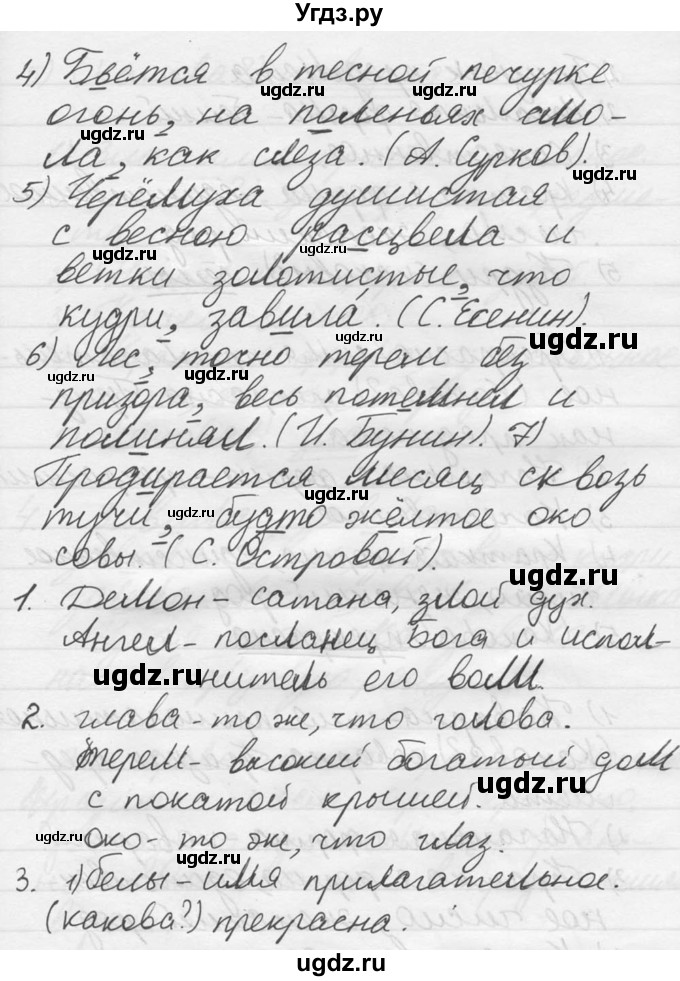 Угдз.ру
4) Бьётся в тесной печурке
огонь, на поленьях смо-
ла, как слеза. (А. Сурков).
5) Черёмуха душистая
с весною расцвела и
ветки золотистые, что
кудри, завила. (С. Есенин).
6) Лес, точно терем без
призора, весь потемнел и
полинял. (И. Бунин). 7)
Продирается месяц сквозь
тучи, будто жёлтое око
совы. (С. Островой).
1. Демон - сатана, злой дух.
Ангел - посланец Бога и испол-
нитель его воли.
2. глава - то же, что голова.
терем - высокий богатый дом
с покатой крышей.
Око - то же, что глаз.
3. 1) белы - имя прилагательное.
(какова?) прекрасна.
ugdz.ru